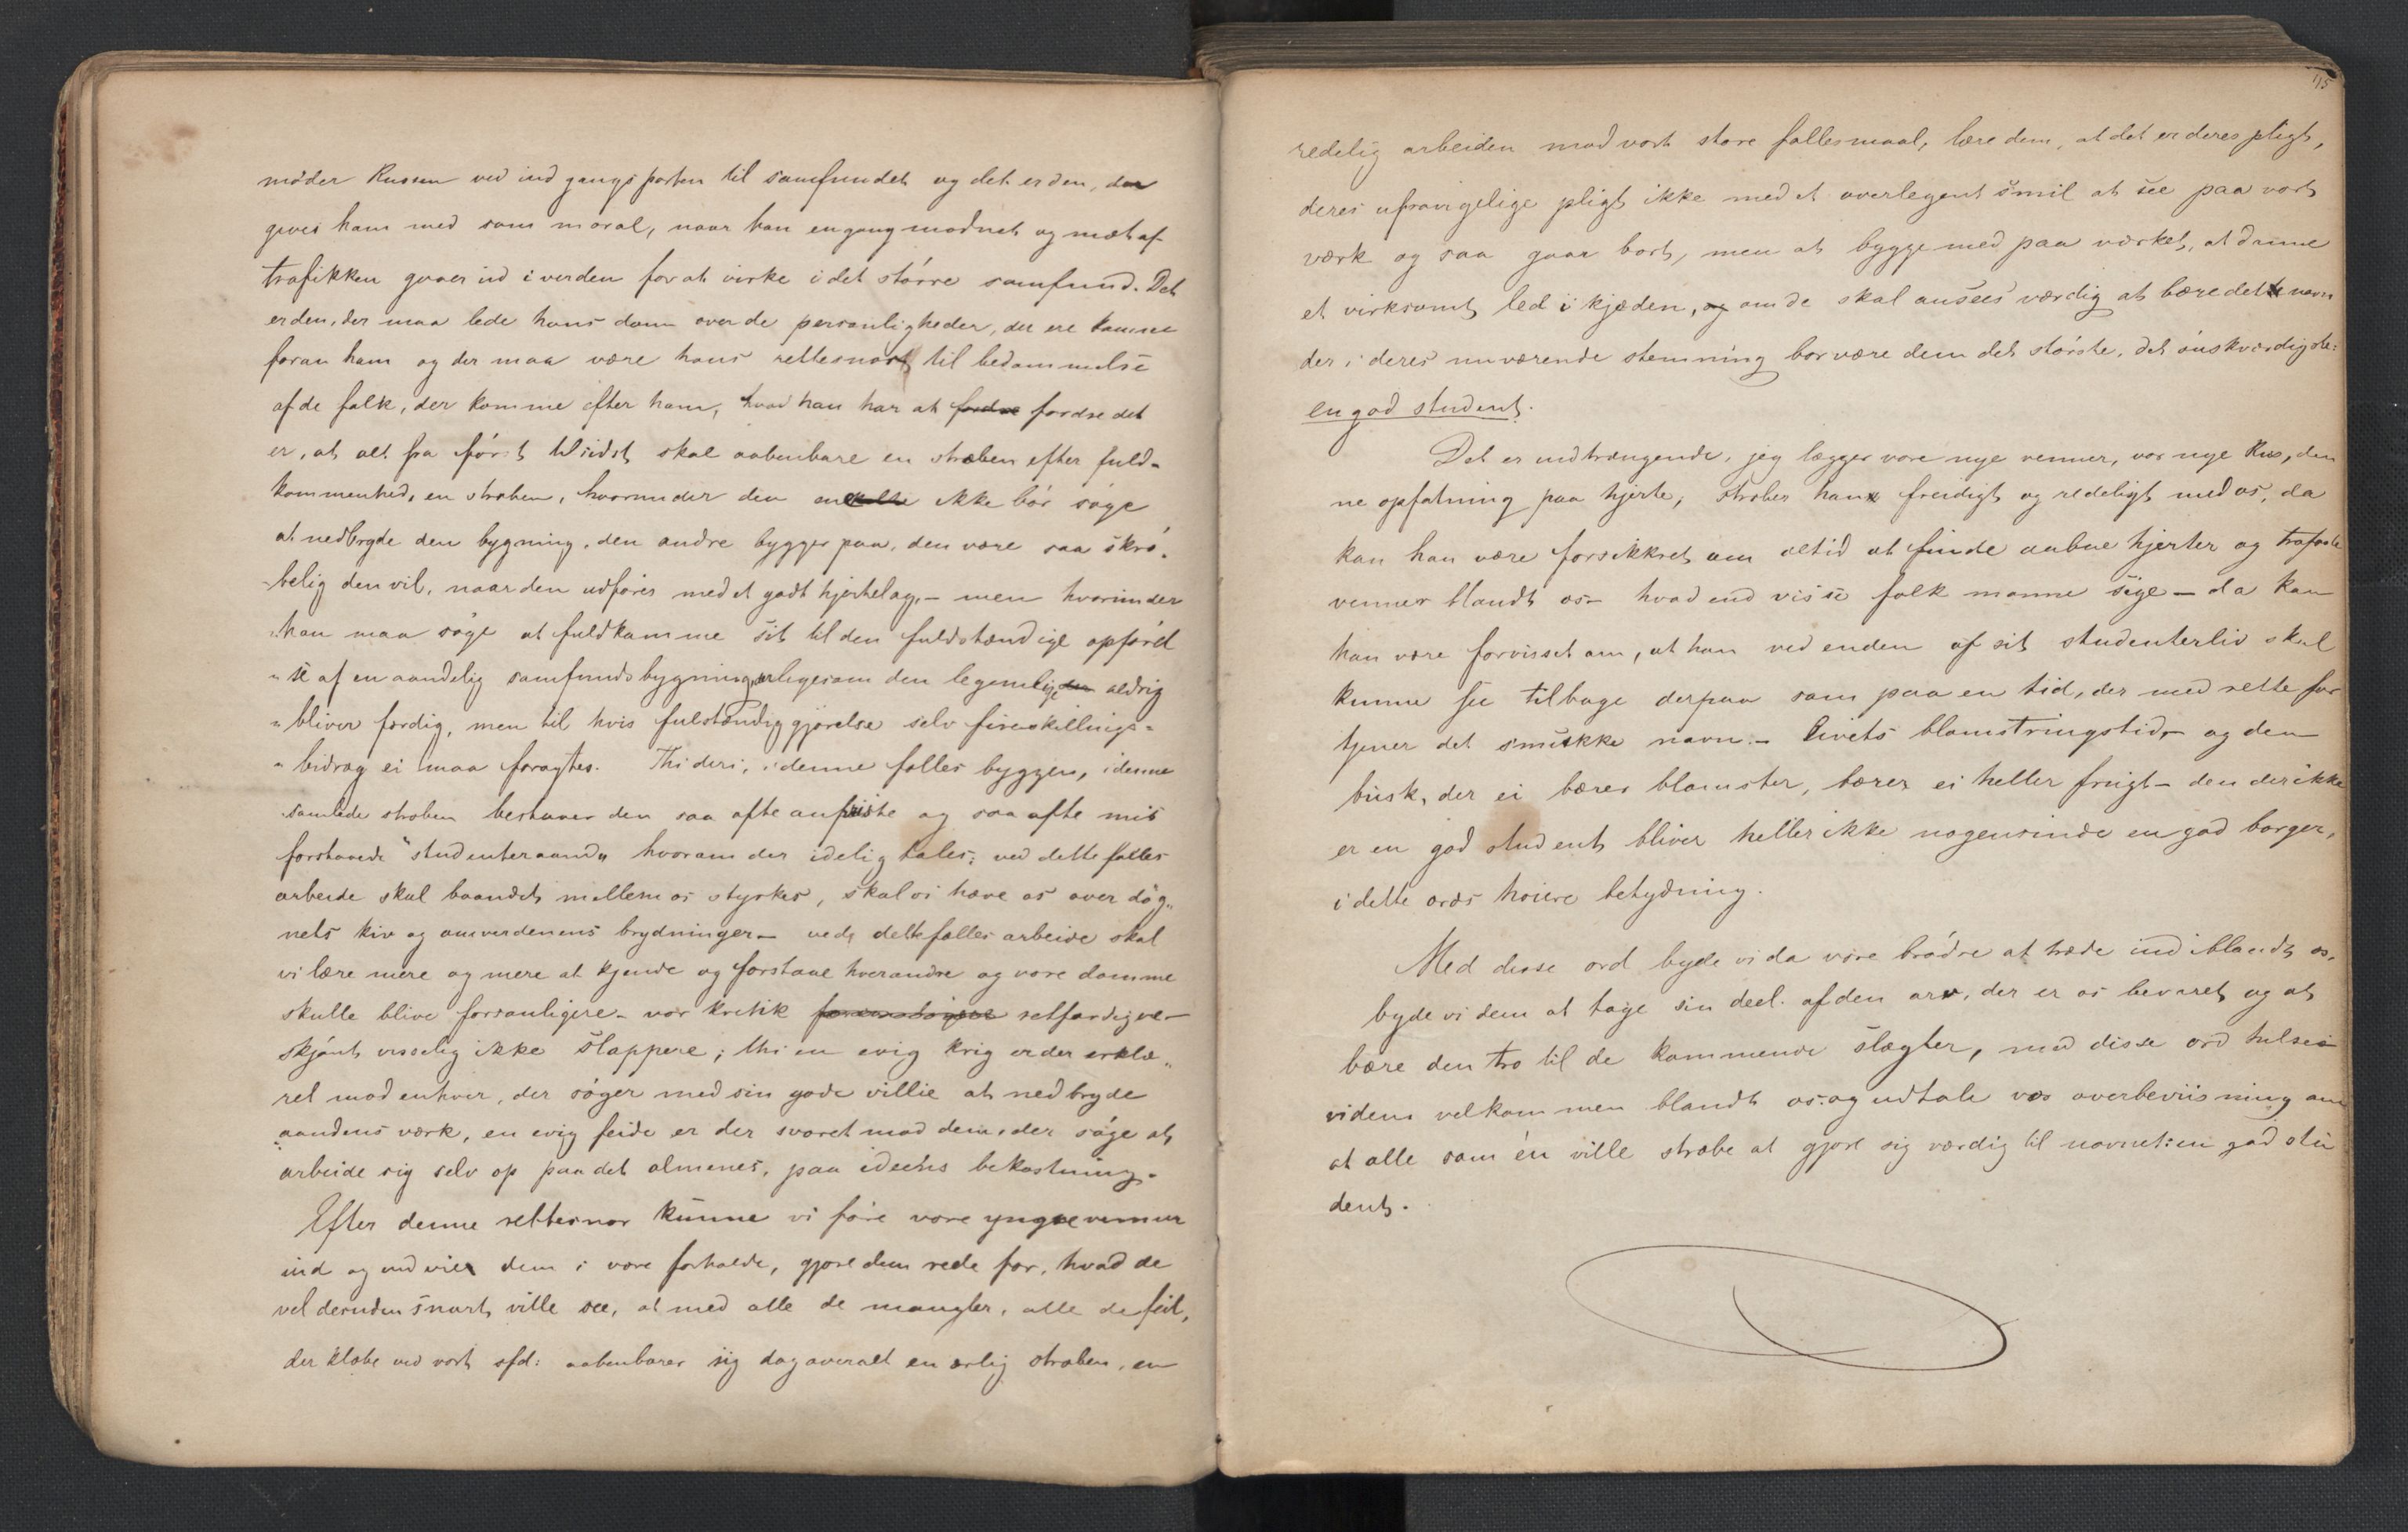 møder Russen ved indgangsporten til samfundet og det er den, der
gives ham med som moral, naar han engang modnet og mæt af
trafikken gaaer ud i verden for at virke i det större samfund. Det
er den, der maa lede hans dom over de personligheder, der ere komne
foran ham og der maa være hans rettesnor til bedömmelse
af de folk, der komme efter ham, hvad han har at fordre fordre det
er, at alt fra först til sidst skal aabenbare en stræben efter fuld-
kommenhed, en stræben, hvorunder den enkelte ikke bör söge
at nedbryde den bygning, den andre bygger paa, den være saa skrö-
belig den vil, naar den udföres med et godt hjertelag, – men hvorunder
han maa söge at fuldkomme sit til den fuldstændige opförel
se af en aandelig samfundsbygning, der ligesom den legemlige aldrig
bliver færdig, men til hvis fulstændiggjörelse selv fireskillings-
bidrag ei maa foragtes. Thi deri, i denne fælles byggen, i denne
samlede stræben bestaaer den saa ofte anpriste og saa ofte mis
forstaaede "studenteraand" hvorom der idelig tales; ved dette fælles
arbeide skal baandet mellem os styrkes, skal vi hæve os over dög-
nets kiv og omverdenens brydninger – ved dette fælles arbeide skal
vi lære mere og mere at kjende og forstaae hverandre og vore domme
skulle blive forsonligere – vor kritik retfærdigere –
skjönt visselig ikke slappere; thi en evig krig er der erklæ-
ret mod enhver, der söger med sin gode villie at nedbryde
aandens værk, en evig feide er der svoret mod dem, der söge at
arbeide sig selv op paa det almenes, paa ideens bekostning.
Efter denne rettesnor kunne vi före vore yngre venner
ind og indvie dem i vore forholde, gjöre dem rede for, hvad de
vel desuden snart ville see, at med alle de mangler, alle de feil,
der klæbe ved vort sfd: aabenbarer sig dog overalt en ærlig stræben, en
115
redelig arbeiden mod vort store fællesmaal, lære dem, at det er deres pligt,
deres ufravigelige pligt ikke med et overlegent smil at see paa vort
værk og saa gaae bort, men at bygge med paa værket, at danne
et virksomt led i kjæden, og om de skal ansees værdig at bære dette navn
der i deres nuværende stemning bör være dem det störste, det önskværdigste:
en god student.
Det er indtrængende, jeg lægger vore nye venner, vor nye Rus, den
ne opfatning paa hjerte, stræber han freidigt og redeligt med os, da
kan han være forsikkret om altid at finde aabne hjerter og trofaste
venner blandt os – hvad end visse folk monne sige – da kan
han være forvisset om, at han ved enden af sit studenterliv skal
kunne see tilbage derpaa som paa en tid, der med rette for
tjener det smukke navn – livets blomstringstid, og den
busk, der ei bærer blomster, bærer ei heller frugt – den der ikke
er en god student bliver heller ikke nogensinde en god borger,
i dette ords höiere betydning.
Med disse ord byde vi da vore brödre at træde ind iblandt os,
byde vi dem at tage sin deel af den arv, der er os bevaret og at
bære den tro til de kommende slægter, med disse ord hilse
vi dem velkommen blandt os og udtale vor overbeviisning om
at alle som én ville stræbe at gjöre sig værdig til navnet: en god stu
dent.